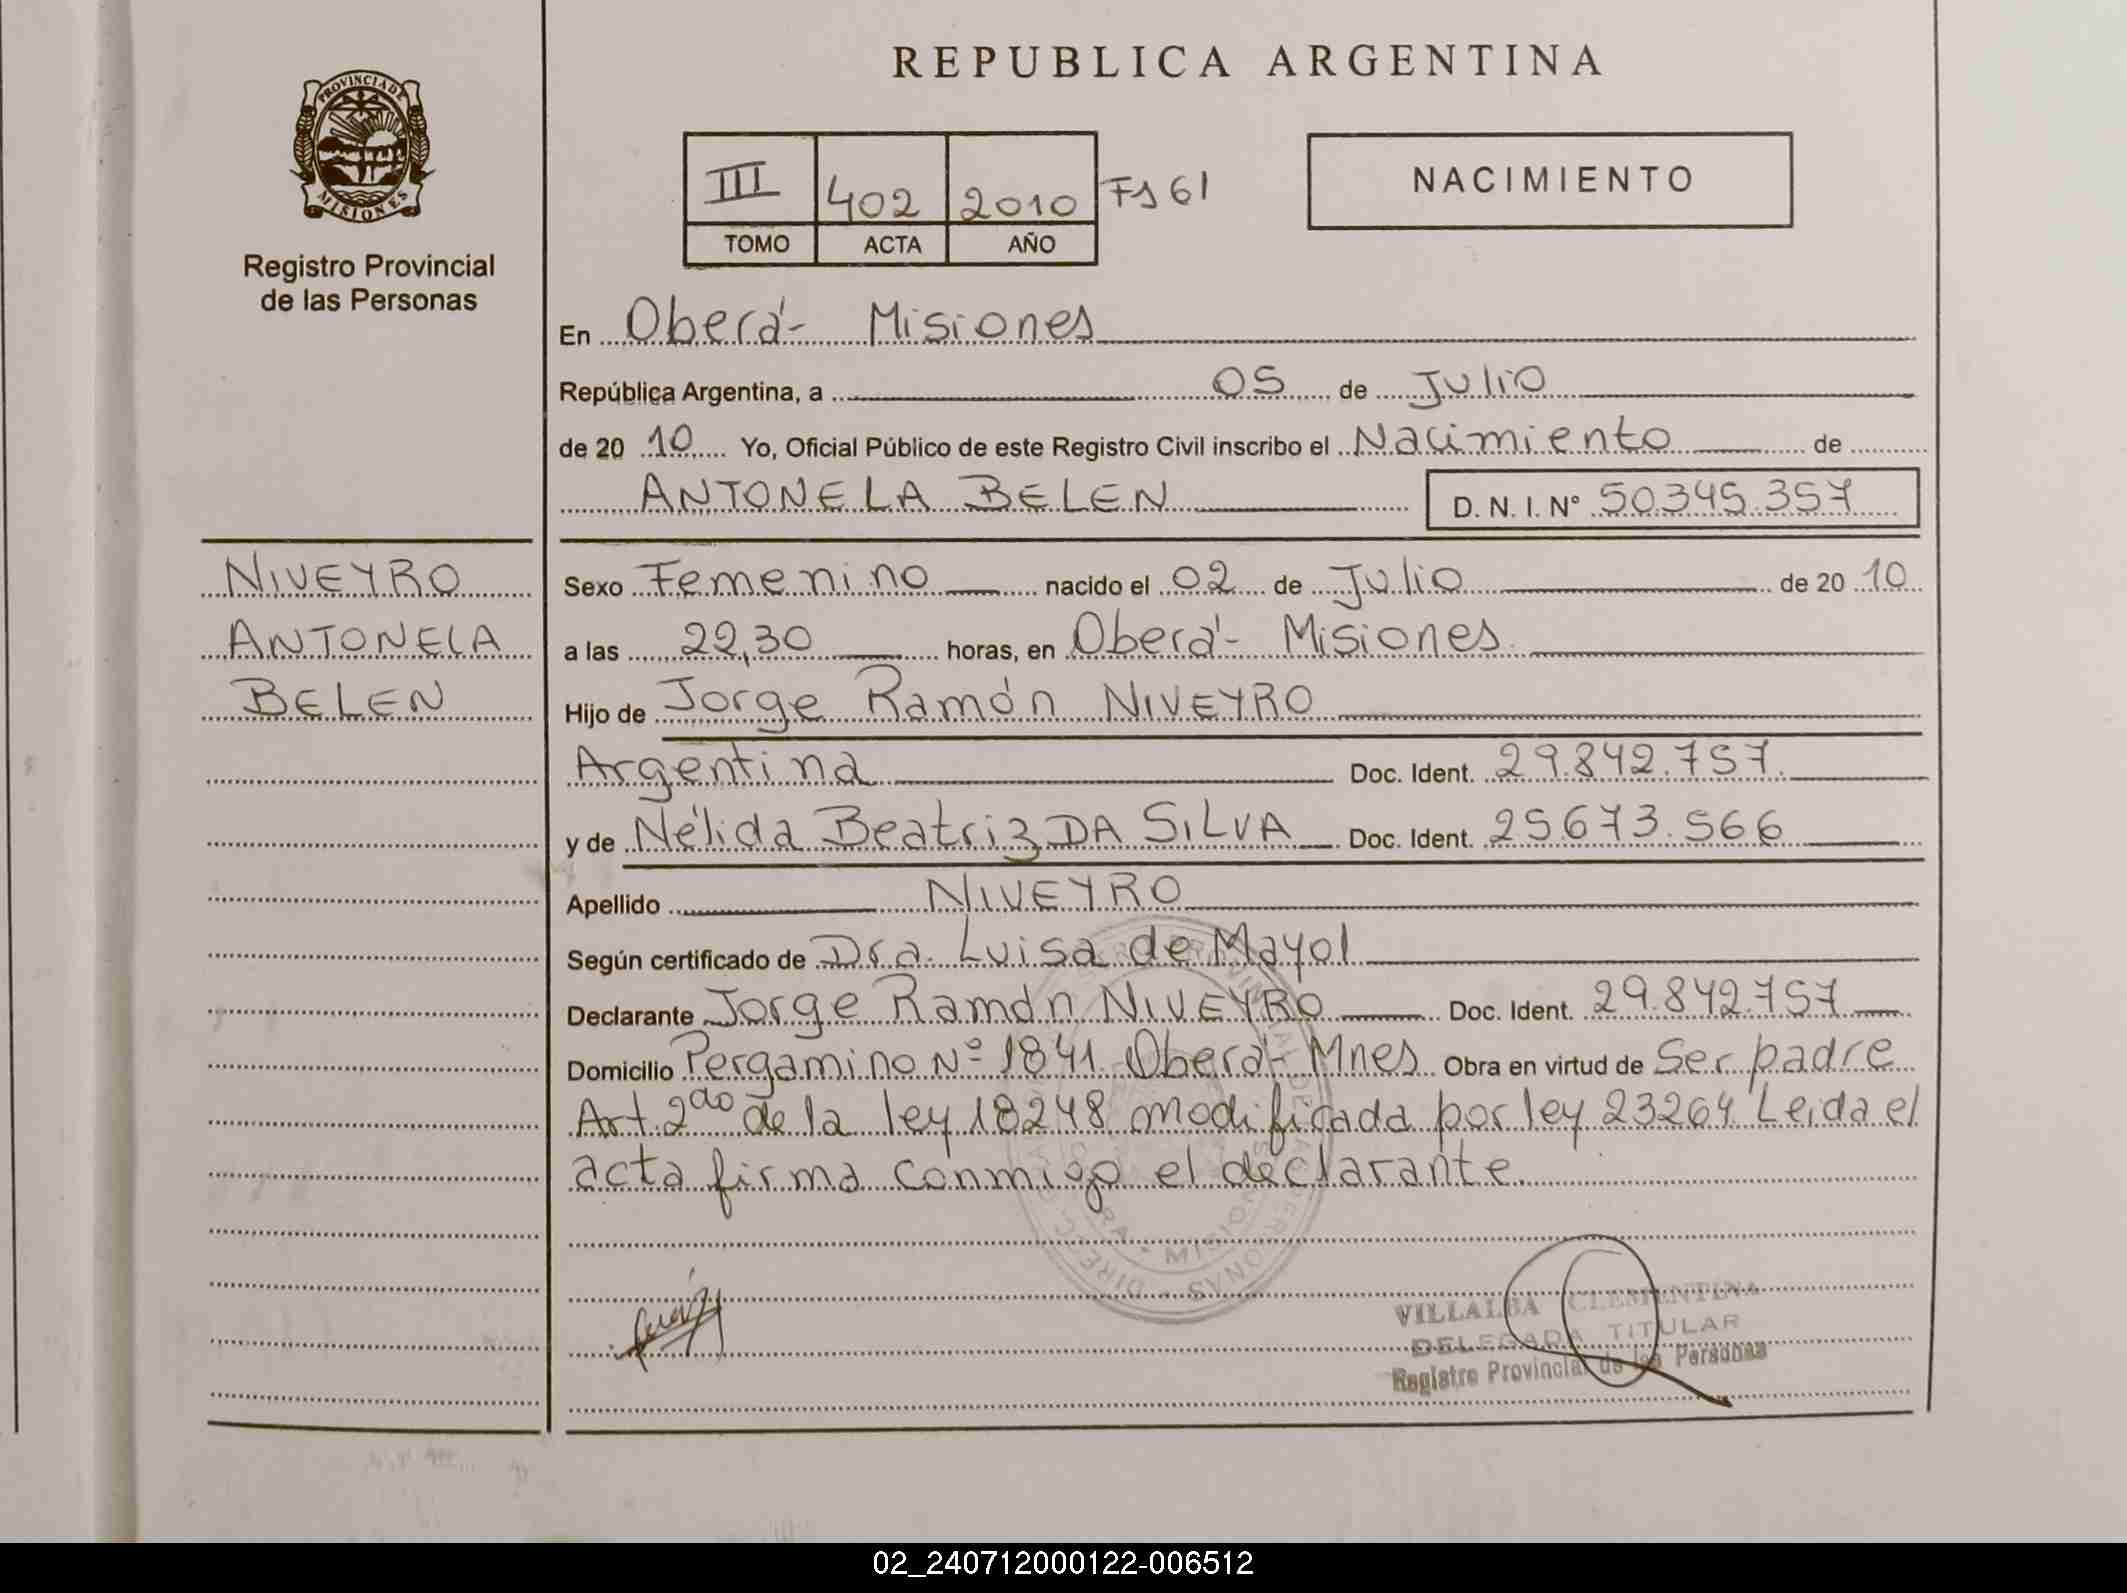 REPUBLICA ARGENTINA
PROVINCIA DE
MISIONES
Registro Provincial
de las Personas
III 402 2010 Fs 61
TOMO ACTA AÑO
NACIMIENTO
En Oberá- Misiones
República Argentina, a 05 de Julio
de 20 10 Yo, Oficial Público de este Registro Civil inscribo el Nacimiento de
ANTONELA BELEN D. N. I. Nº 50.345.357
NIVEYRO
ANTONELA
BELEN
Sexo Femenino nacido el 02 de Julio de 20 10
a las 22,30 horas, en Oberá- Misiones
Hijo de Jorge Ramón NIVEYRO
Argentina Doc. Ident. 29.842.757.
y de Nélida Beatriz DA SILVA Doc. Ident. 25.673.566
Apellido NIVEYRO
Según certificado de Dra. Luisa de Mayol
Declarante Jorge Ramón NIVEYRO Doc. Ident. 29.842.757
Domicilio Pergamino Nº 1841 Oberá- Mnes Obra en virtud de Ser padre
Art. 2do de la ley 18248 modificada por ley 23264 Leida el
acta firma conmigo el declarante
VILLALBA CLEMENTINA
DELEGADA TITULAR
Registro Provincial de las Personas
02_240712000122-006512